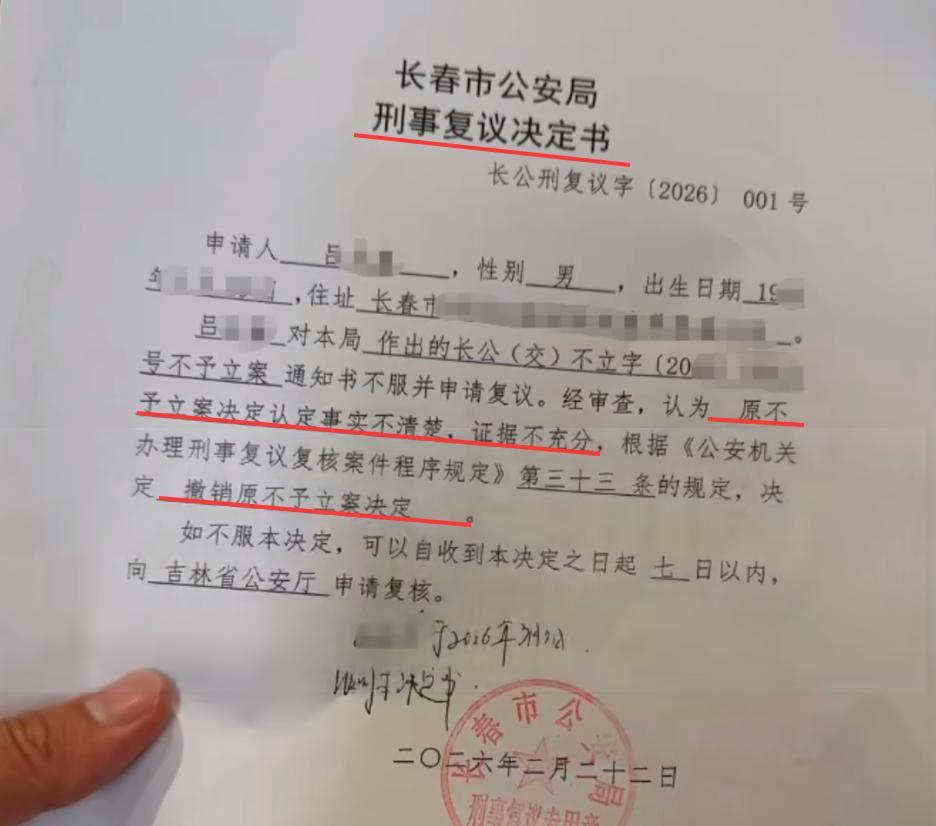 长春市公安局
刑事复议决定书
长公刑复议字〔2026〕 001 号
申请人 吕 ，性别 男 ，出生日期 19
年 ，住址 长春市 。
吕 对本局 作出的长公（交）不立字〔20
号不予立案 通知书不服并申请复议。经审查，认为 原不
予立案决定认定事实不清楚，证据不充分，根据《公安机关
办理刑事复议复核案件程序规定》第三十三 条的规定，决
定 撤销原不予立案决定 。
如不服本决定，可以自收到本决定之日起 七 日以内，
向 吉林省公安厅 申请复核。
于2026年
收到本决定书
长春市公安局
二〇二六年二月二十二日
刑事复议专用章